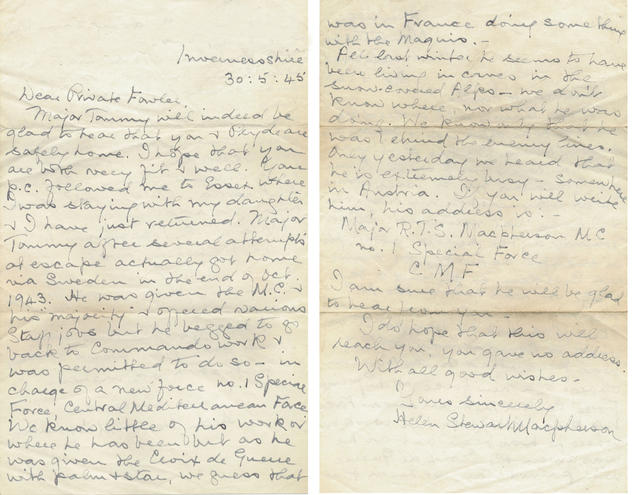 Inverness-shire
30:5:45
Dear Private Fowler,
Major Tommy will indeed be
glad to hear that you & Clyde are
safely home. I hope that you
are both very fit & well. Your
p.c. followed me to Essex where
I was staying with my daughter
& I have just returned. Major
Tommy after several attempts
at escape actually got home
via Sweden in the end of Oct.
1943. He was given the M.C. &
his majority & offered various
Staff jobs but he begged to go
back to Commando work &
was permitted to do so – in
charge of a new force no. 1 Special
Force, Central Mediterranean Force
We know little of his work or
where he has been but as he
was given the Croix de Guerre
with palm & star, we guess that
was in France doing something
with the Maquis. –
All last winter he seems to have
been living in caves in the
snow-covered Alps – we don't
know where, nor what he was
doing. We know only that he
was behind the enemy lines.
Only yesterday we heard that
he is extremely busy – somewhere
in Austria. If you will write
him, his address is. –
Major R.T.S. Macpherson M.C
no. 1 Special Force
C.M.F.
I am sure that he will be glad
to hear from you –
I do hope that this will
reach you, you gave no address.
With all good wishes –
Yours sincerely
Helen Stewart Macpherson